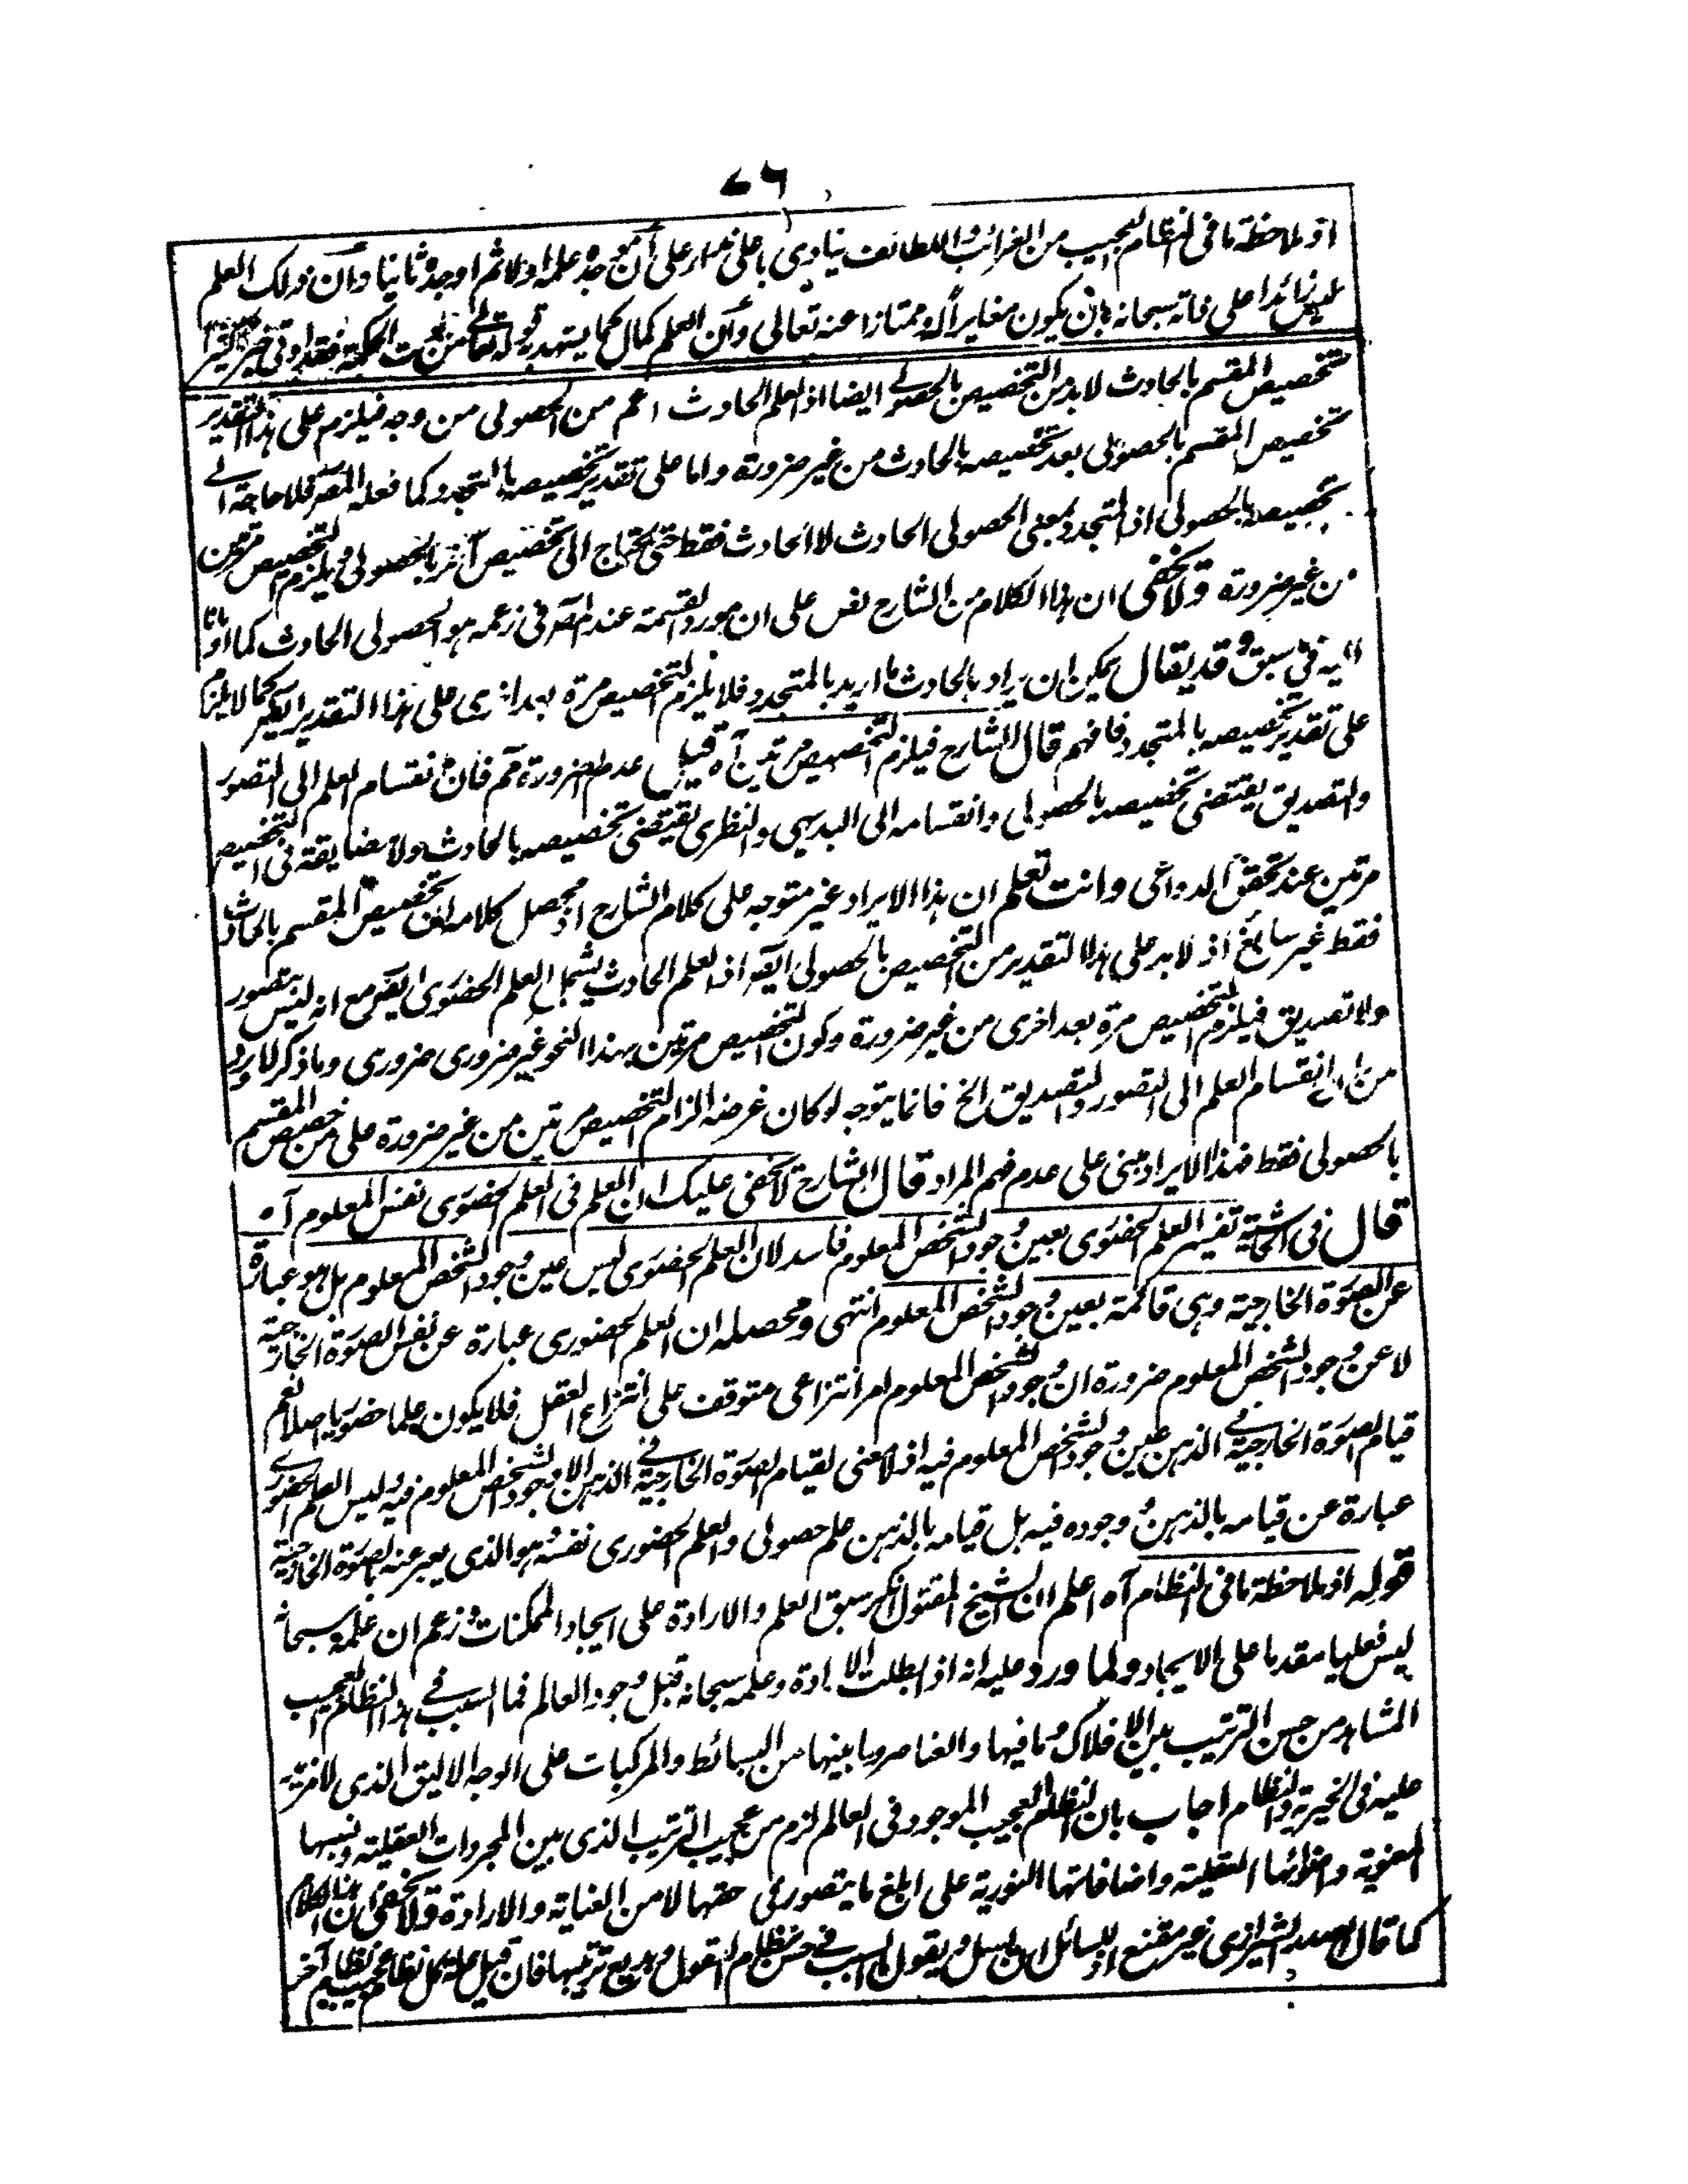 ٧٦
اذ ملاحظة ما فى النظام العجيب من الغرائب واللطائف ينادى باعلى نداء على أن موجده علمه اولا ثم اوجده ثانيا وأن ذلك العلم
ليس زائدا على ذاته سبحانه بان يكون مغايرا له وممتازا عنه تعالى وأن العلم كمال كما يشهد به قوله تعالى من يؤت الحكمة فقد اوتى خيرا كثيرا
تخصيص المقسم بالحادث لابد من التخصيص بالحصولى ايضا اذ العلم الحادث اعم من الحصولى من وجه فيلزم على هذا التقدير
تخصيص المقسم بالحصولى بعد تخصيصه بالحادث من غير ضرورة واما على تقدير تخصيصه بالمتجدد كما فعله المصر فلا حاجة الى
تخصيصه بالحصولى اذ المتجدد بمعنى الحصولى الحادث لا الحادث فقط حتى يحتاج الى تخصيص آخر بالحصولى ويلزم التخصيص مرتين
من غير ضرورة ولا يخفى ان هذا الكلام من الشارح نص على ان مورد القسمة عند المصر فى زعمه هو الحصولى الحادث كما اومانا
اليه فى سبق وقد يقال يمكن ان يراد بالحادث ما اريد بالمتجدد فلا يلزم التخصيص مرة بعد اخرى على هذا التقدير ايضا كما لا يلزم
على تقدير تخصيصه بالمتجدد فافهم قال الشارح فيلزم التخصيص مرتين آه قيل عدم الضرورة مم فان انقسام العلم الى التصور
والتصديق يقتضى تخصيصه بالحصولى وانقسامه الى البديهى والنظرى يقتضى تخصيصه بالحادث ولا مضايقة فى التخصيص
مرتين عند تحقق الدواعى وانت تعلم ان هذا الايراد غير متوجه على كلام الشارح اذ محصل كلامه ان تخصيص المقسم بالحادث
فقط غير سائغ اذ لابد على هذا التقدير من التخصيص بالحصولى ايضا اذ العلم الحادث يشمل العلم الحضورى ايضا مع انه ليس بتصور
ولا تصديق فيلزم التخصيص مرة بعد اخرى من غير ضرورة وكون التخصيص مرتين بهذا النحو غير ضرورى ضرورى وما ذكر المورد
من ان انقسام العلم الى التصور والتصديق الخ فانما يتوجه لو كان غرضه الزام التخصيص مرتين من غير ضرورة على من خصص المقسم
بالحصولى فقط فهذا الايراد مبنى على عدم فهم المراد قال الشارح لا يخفى عليك ان العلم فى العلم الحضورى نفس المعلوم آه
قال فى الحاشية تفسير العلم الحضورى بعين وجود الشخص المعلوم فاسد لان العلم الحضورى ليس عين وجود الشخص المعلوم بل هو عبارة
عن الصورة الخارجية وهى قائمة بعين وجود الشخص المعلوم انتهى ومحصله ان العلم الحضورى عبارة عن نفس الصورة الخارجية
لا عن وجود الشخص المعلوم ضرورة ان وجود الشخص المعلوم امر انتزاعى متوقف على انتزاع العقل فلا يكون علما حضوريا اصلا نعم
قيام الصورة الخارجية فى الذهن عين وجود الشخص المعلوم فيه اذ لا معنى لقيام الصورة الخارجية فى الذهن الا وجود الشخص المعلوم فيه وليس العلم الحضورى
عبارة عن قيامه بالذهن ووجوده فيه بل قيامه بالذهن علم حصولى والعلم الحضورى نفسه هو الذى يعبر عنه بالصورة الخارجية
قوله اذ ملاحظة ما فى النظام آه اعلم ان الشيخ المقتول انكر سبق العلم والارادة على ايجاد الممكنات وزعم ان علمه سبحانه
ليس فعليا مقدما على الايجاد ولما ورد عليه انه اذ ابطلت الارادة وعلمه سبحانه قبل وجود العالم فما السبب فى هذا النظام العجيب
المشاهد من حسن الترتيب بين الافلاك وما فيها والعناصر وما بينها من البسائط والمركبات على الوجه الاليق الذى لا مزيد
عليه فى الخيرية والنظام اجاب بان النظام العجيب الموجود فى العالم لزم من عجيب الترتيب الذى بين المجردات العقلية ونسبها
المعنوية واضوائها العقلية واضافاتها النورية على ابلغ ما يتصور فى حقها لا من العناية والارادة ولا يخفى ان هذا الكلام
كما قال الصدر الشيرازى غير مقنع اذ للسائل ان يسل ويقول ما السبب فى حسن نظام العقول وبديع ترتيبها فان قيل علة كل نظام عجيب نظام آخر